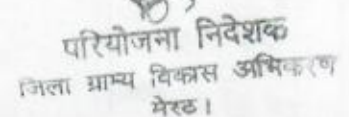 परियोजना निदेशक
जिला ग्राम्य विकास अभिकरण
मेरठ।